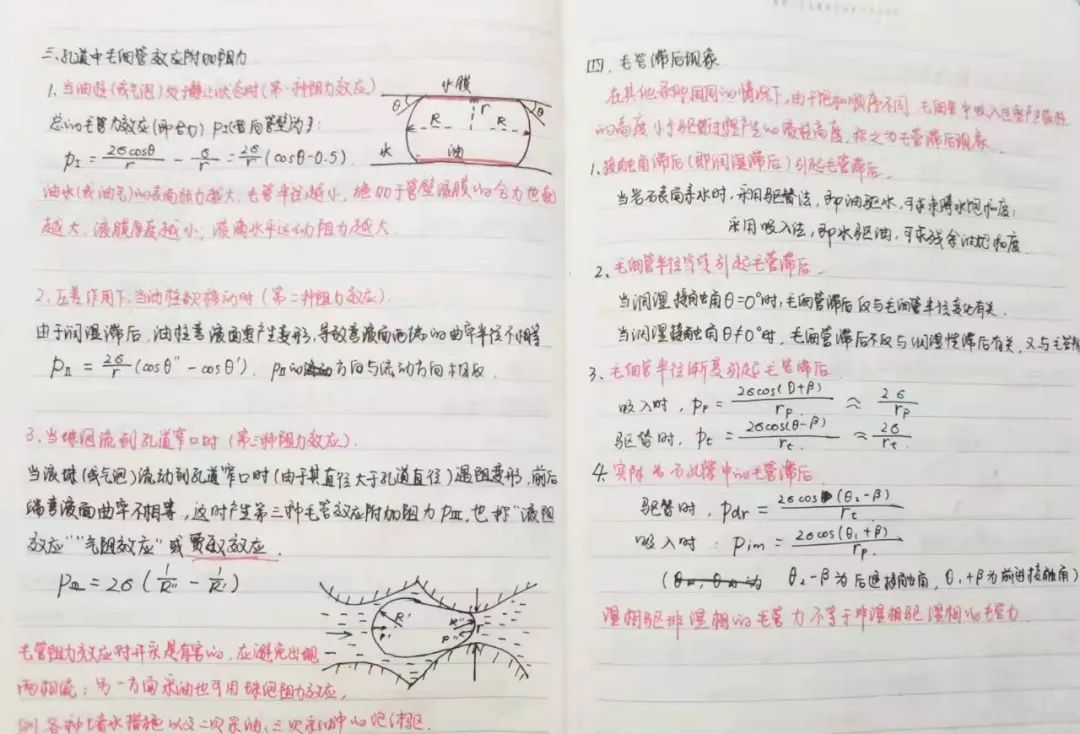 三.孔道中毛细管效应附加阻力
1.当油柱(或气泡)处于静止状态时(第一种阻力效应)
总的毛管力效应(即合力)PI(指向管壁)为:
pI = 2σcosθ/r - σ/r = 2σ/r (cosθ-0.5).
水膜
θ
r
θ
R
R
水
油
油水(或油气)的表面张力越大,毛管半径越小,施加于管壁液膜的合力也就
越大.液膜厚度越小,液滴水平运动阻力越大
2.压差作用下,当油柱欲移动时(第二种阻力效应).
由于润湿滞后,油柱弯液面要产生变形,导致弯液面两端的曲率半径不相等
pII = 2σ/r (cosθ''-cosθ'). pII的方向与流动方向相反.
3.当珠泡流到孔道窄口时(第三种阻力效应).
当液珠(或气泡)流动到孔道窄口时(由于其直径大于孔道直径)遇阻变形,前后
端弯液面曲率不相等,这时产生第三种毛管效应附加阻力PIII,也称“液阻
效应”“气阻效应”或贾敏效应.
pIII = 2σ(1/R'' - 1/R')
R'
P'
R''
P''
r
毛管阻力效应对开采是有害的,应避免出现
两相流;另一方面采油也可用珠泡阻力效应,
例各种堵水措施以及二次采油,三次采油中的泡沫驱.
四.毛管滞后现象
在其他条件相同的情况下,由于饱和顺序不同,毛细管中吸入过程产生液柱
的高度小于驱替过程产生的液柱高度,称之为毛管滞后现象
1.接触角滞后(即润湿滞后)引起毛管滞后.
当岩石表面亲水时,采用驱替法,即油驱水,可求束缚水饱和度;
采用吸入法,即水驱油,可求残余油饱和度.
2.毛细管半径突变引起毛管滞后.
当润湿接触角θ=0°时,毛细管滞后仅与毛细管半径变化有关.
当润湿接触角θ≠0°时,毛细管滞后不仅与润湿性滞后有关,又与毛管
3.毛细管半径渐变引起毛管滞后
吸入时,pp = 2σcos(θ+β)/rp. ≈ 2σ/rp
驱替时,pt = 2σcos(θ-β)/rt. ≈ 2σ/rt.
4.实际岩石孔隙中的毛管滞后.
驱替时,pdr = 2σcos(θ2-β)/rt.
吸入时:pim = 2σcos(θ1+β)/rp.
(θ2-β为后退接触角,θ1+β为前进接触角)
湿相驱非湿相的毛管力不等于非湿相驱湿相的毛管力.